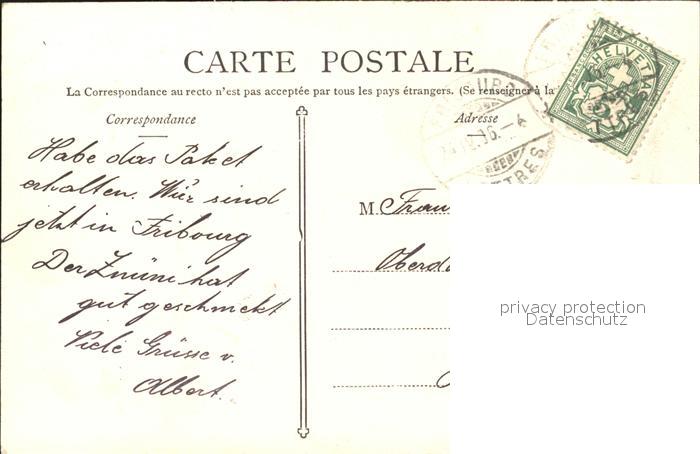 CARTE POSTALE
La Correspondance au recto n'est pas acceptée par tous les pays étrangers. (Se renseigner à la
Correspondance
Adresse
Habe das Paket
erhalten. Wir sind
jetzt in Fribourg
Der Znüni hat
gut geschmekt
Viele Grüsse v.
Albert.
M. Frau
Oberd
HELVETIA
privacy protection
Datenschutz